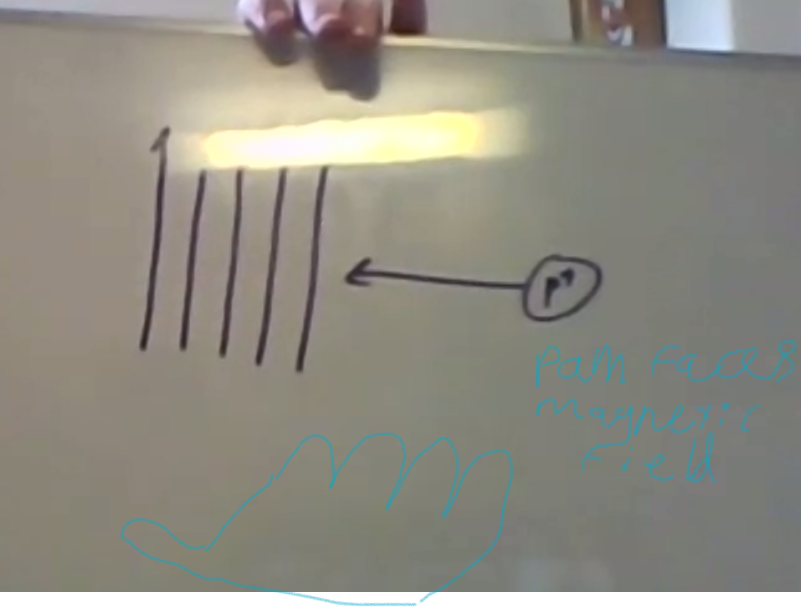 p+
Palm Faces
magnetic
Field